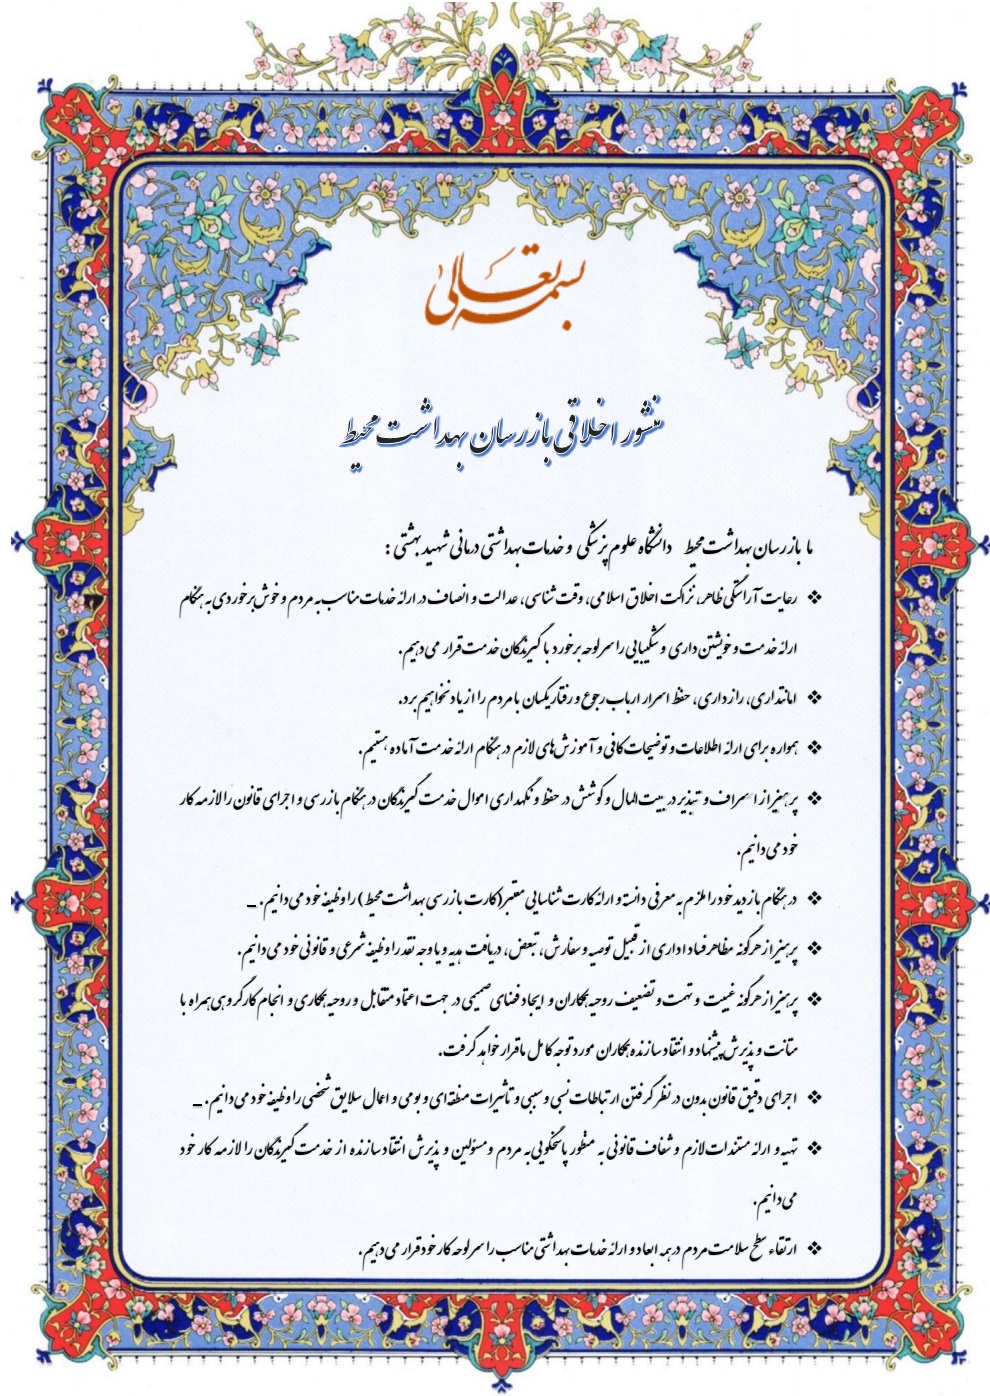 بسمه تعالی
منشور اخلاقی بازرسان بهداشت محیط
ما بازرسان بهداشت محیط دانشگاه علوم پزشکی و خدمات بهداشتی درمانی شهید بهشتی :
❖ رعایت آراستگی ظاهر، نزاکت اخلاق اسلامی، وقت شناسی، عدالت و انصاف در ارائه خدمات مناسب به مردم و خوش برخوردی به هنگام
ارائه خدمت و خویشتن داری و شکیبایی را سرلوحه برخورد با گیرندگان خدمت قرار می دهیم.
❖ امانتداری، رازداری، حفظ اسرار ارباب رجوع و رفتار یکسان با مردم را از یاد نخواهیم برد.
❖ همواره برای ارائه اطلاعات و توضیحات کافی و آموزش های لازم در هنگام ارائه خدمت آماده هستیم.
❖ پرهیز از اسراف و تبذیر در بیت المال و کوشش در حفظ و نگهداری اموال خدمت گیرندگان در هنگام بازرسی و اجرای قانون را لازمه کار
خود می دانیم.
❖ در هنگام بازدید خود را ملزم به معرفی دانسته و ارائه کارت شناسایی معتبر(کارت بازرسی بهداشت محیط ) را وظیفه خود می دانیم. _
❖ پرهیز از هرگونه مظاهر فساد اداری از قبیل توصیه و سفارش، تبعض، دریافت هدیه و یا وجه نقد را وظیفه شرعی و قانونی خود می دانیم.
❖ پرهیز از هرگونه غیبت و تهمت و تضعیف روحیه همکاران و ایجاد فضای صمیمی در جهت اعتماد متقابل و روحیه همکاری و انجام کار گروهی همراه با
متانت و پذیرش پیشنهاد و انتقاد سازنده همکاران مورد توجه کامل ما قرار خواهد گرفت.
❖ اجرای دقیق قانون بدون در نظر گرفتن ارتباطات نسبی و سببی و تاثیرات منطقه ای و بومی و اعمال سلایق شخصی را وظیفه خود می دانیم. _
❖ تهیه و ارائه مستندات لازم و شفاف قانونی به منظور پاسخگویی به مردم و مسئولین و پذیرش انتقاد سازنده از خدمت گیرندگان را لازمه کار خود
می دانیم.
❖ ارتقاء سطح سلامت مردم در همه ابعاد و ارائه خدمات بهداشتی مناسب را سرلوحه کار خود قرار می دهیم.